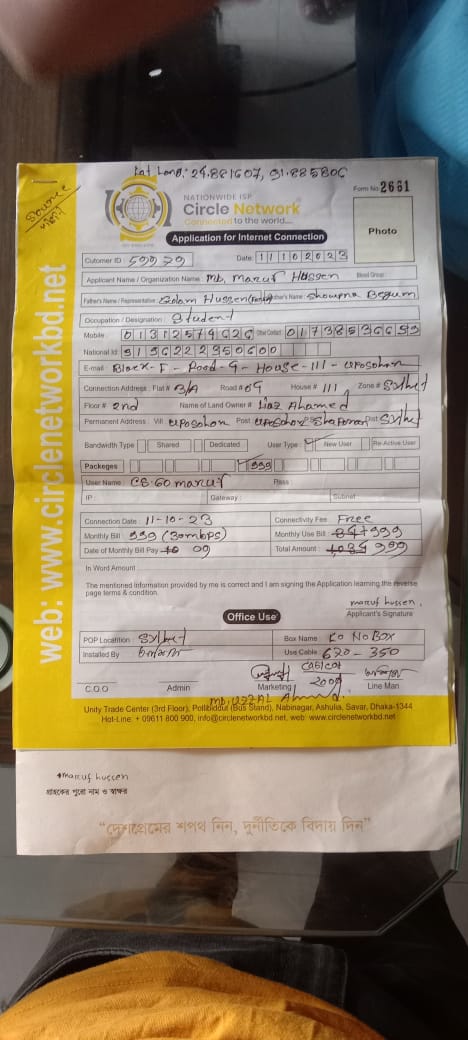 Lat Long: 24.881607, 91.885806
Form No. 2661
NATIONWIDE ISP
Circle Network
Connected to the world....
Application for Internet Connection
Photo
Cutomer ID : Date: 11102023
Applicant Name / Organization Name : Md. Maruf Hussen Blood Group:
Father's Name / Representative : Golam Hussen Mother's Name : Shourna Begum
Occupation / Designation : Student
Mobile : 01312574626 01738536699
National Id: 91196222950600
E-mail : Block-F - Road-9 - House-111 - uposohon
Connection Address : Flat # 3/A Road # 09 House # 111 Zone # Sylhet
Floor # 2nd Name of Land Owner # Liaz Ahamed
Permanent Address : Vill uposohon Post uposohon Dist Sylhet
Bandwidth Type Shared Dedicated User Type : New User Re-Active User
Packeges 999
User Name : CB.GO maruf Pass :
IP : Gateway : Subnet
Connection Date : 11-10-23 Connectivity Fee Free
Monthly Bill : 999 (30mbps) Monthly Use Bill : 999
Date of Monthly Bill Pay 09 Total Amount : 999
In Word Amount
The mentioned information provided by me is correct and I am signing the Application learning the reverse
page terms & condition.
maruf hussen.
Applicant's Signature
Office Use
POP Locatition : Sylhet Box Name : No Box
Installed By Use Cable : 620 - 350
C.O.O Admin Marketing Line Man
Unity Trade Center (3rd Floor), Pollibiddut (Bus Stand), Nabinagar, Ashulia, Savar, Dhaka-1344
Hot-Line: + 09611 800 900, info@circlenetworkbd.net, web: www.circlenetworkbd.net
web: www.circlenetworkbd.net
maruf hussen
গ্রাহকের পুরো নাম ও স্বাক্ষর
“দেশপ্রেমের শপথ নিন, দুর্নীতিকে বিদায় দিন”